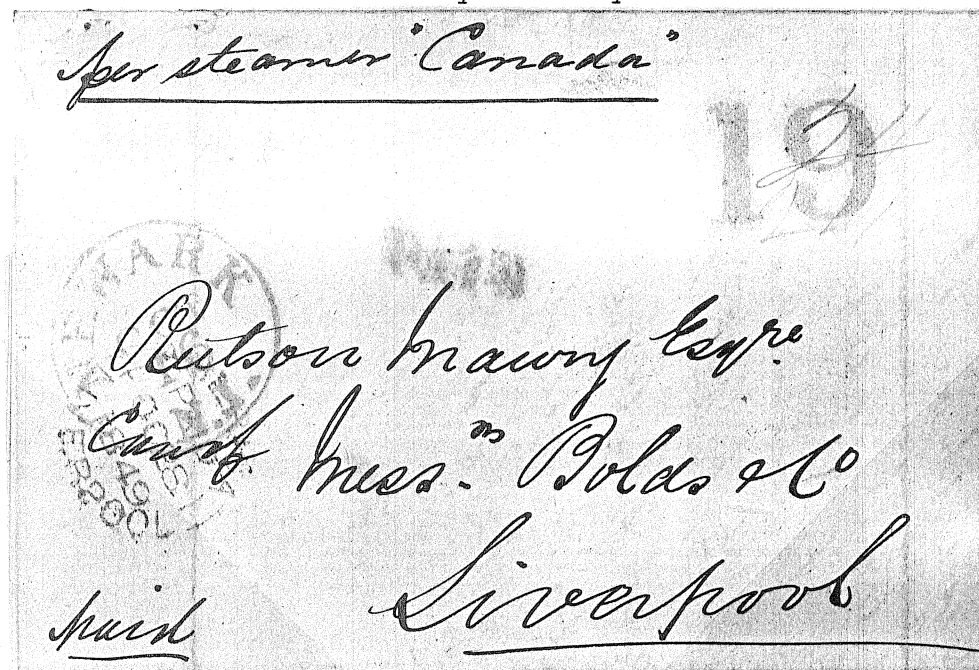 per steamer "Canada"
19
Rutson Maury Esqre
Care of Messrs Bolds & Co
Liverpool
paid